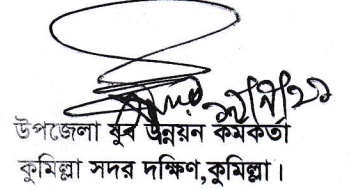 উপজেলা যুব উন্নয়ন কর্মকর্তা
কুমিল্লা সদর দক্ষিণ,কুমিল্লা।